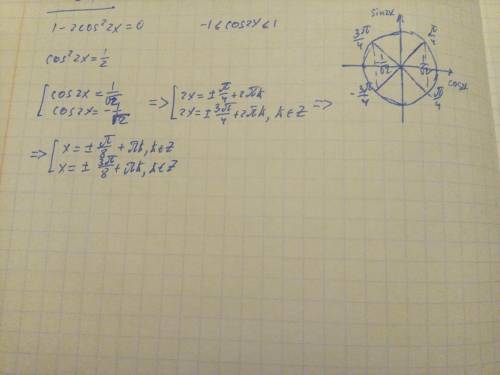 1 - 2cos²2x = 0   -1 ≤ cos2x ≤ 1
cos²2x = 1/2
[ cos2x = 1/√2
cos2x = -1/√2
=> [ 2x = ± π/4 + 2πk
2x = ± 3π/4 + 2πk, k∈Z =>
=> [ x = ± π/8 + πk, k∈Z
x = ± 3π/8 + πk, k∈Z
sin2x
3π/4
π/4
1/√2
cosx
-3π/4